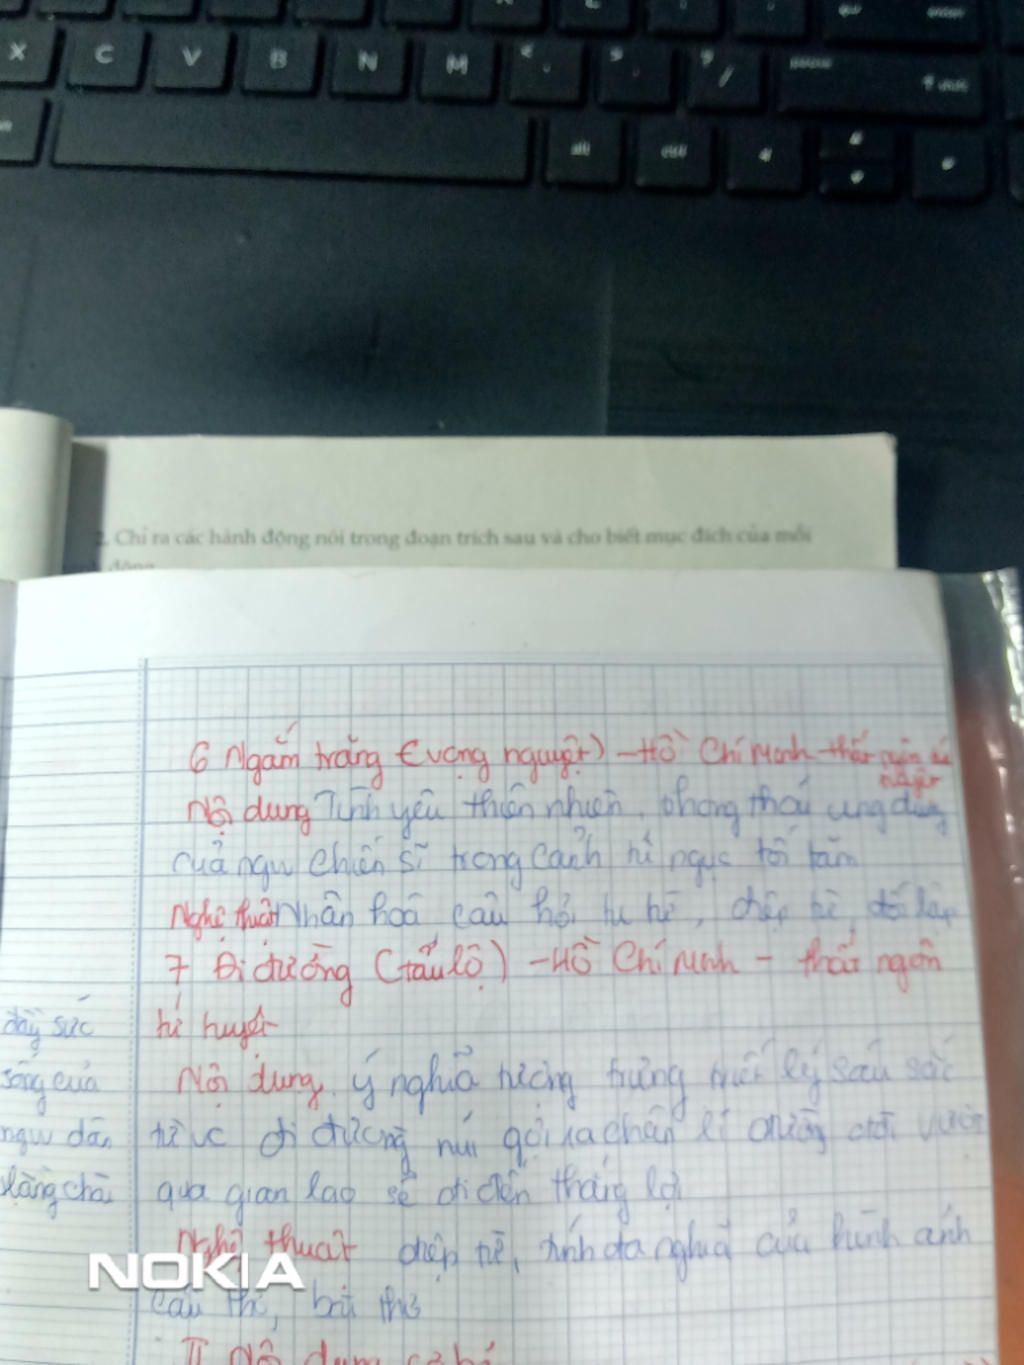 X C V B N M
alt ctrl
2. Chỉ ra các hành động nói trong đoạn trích sau và cho biết mục đích của mỗi
động
6 Ngắm trăng (vọng nguyệt) - Hồ Chí Minh - thất
Nội dung Tình yêu thiên nhiên, phong thái ung dung
của ngư chiến sĩ trong cảnh tù ngục tối tăm
Nghệ thuật Nhân hoá, câu hỏi tu từ, điệp từ, đối lập
7 Đi đường (tẩu lộ) - Hồ Chí Minh - thất ngôn
tứ tuyệt
Nội dung, ý nghĩa tượng trưng triết lý sâu sắc
từ vc đi đường núi gợi ra chân lí đường đời vượt
qua gian lao sẽ đi đến thắng lợi
Nghệ thuật điệp từ, tính đa nghĩa của hình ảnh
câu thơ, bài thơ
II Nội dung
đầy sức
sống của
ngư dân
làng chài
NOKIA